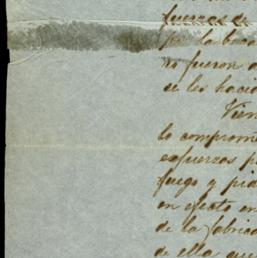 fuerzas de
por la boca
no fueron
se les hacia
Vien
lo comprome
esfuerzos p
fuego y pid
en efecto en
de la fabrica
de ella que